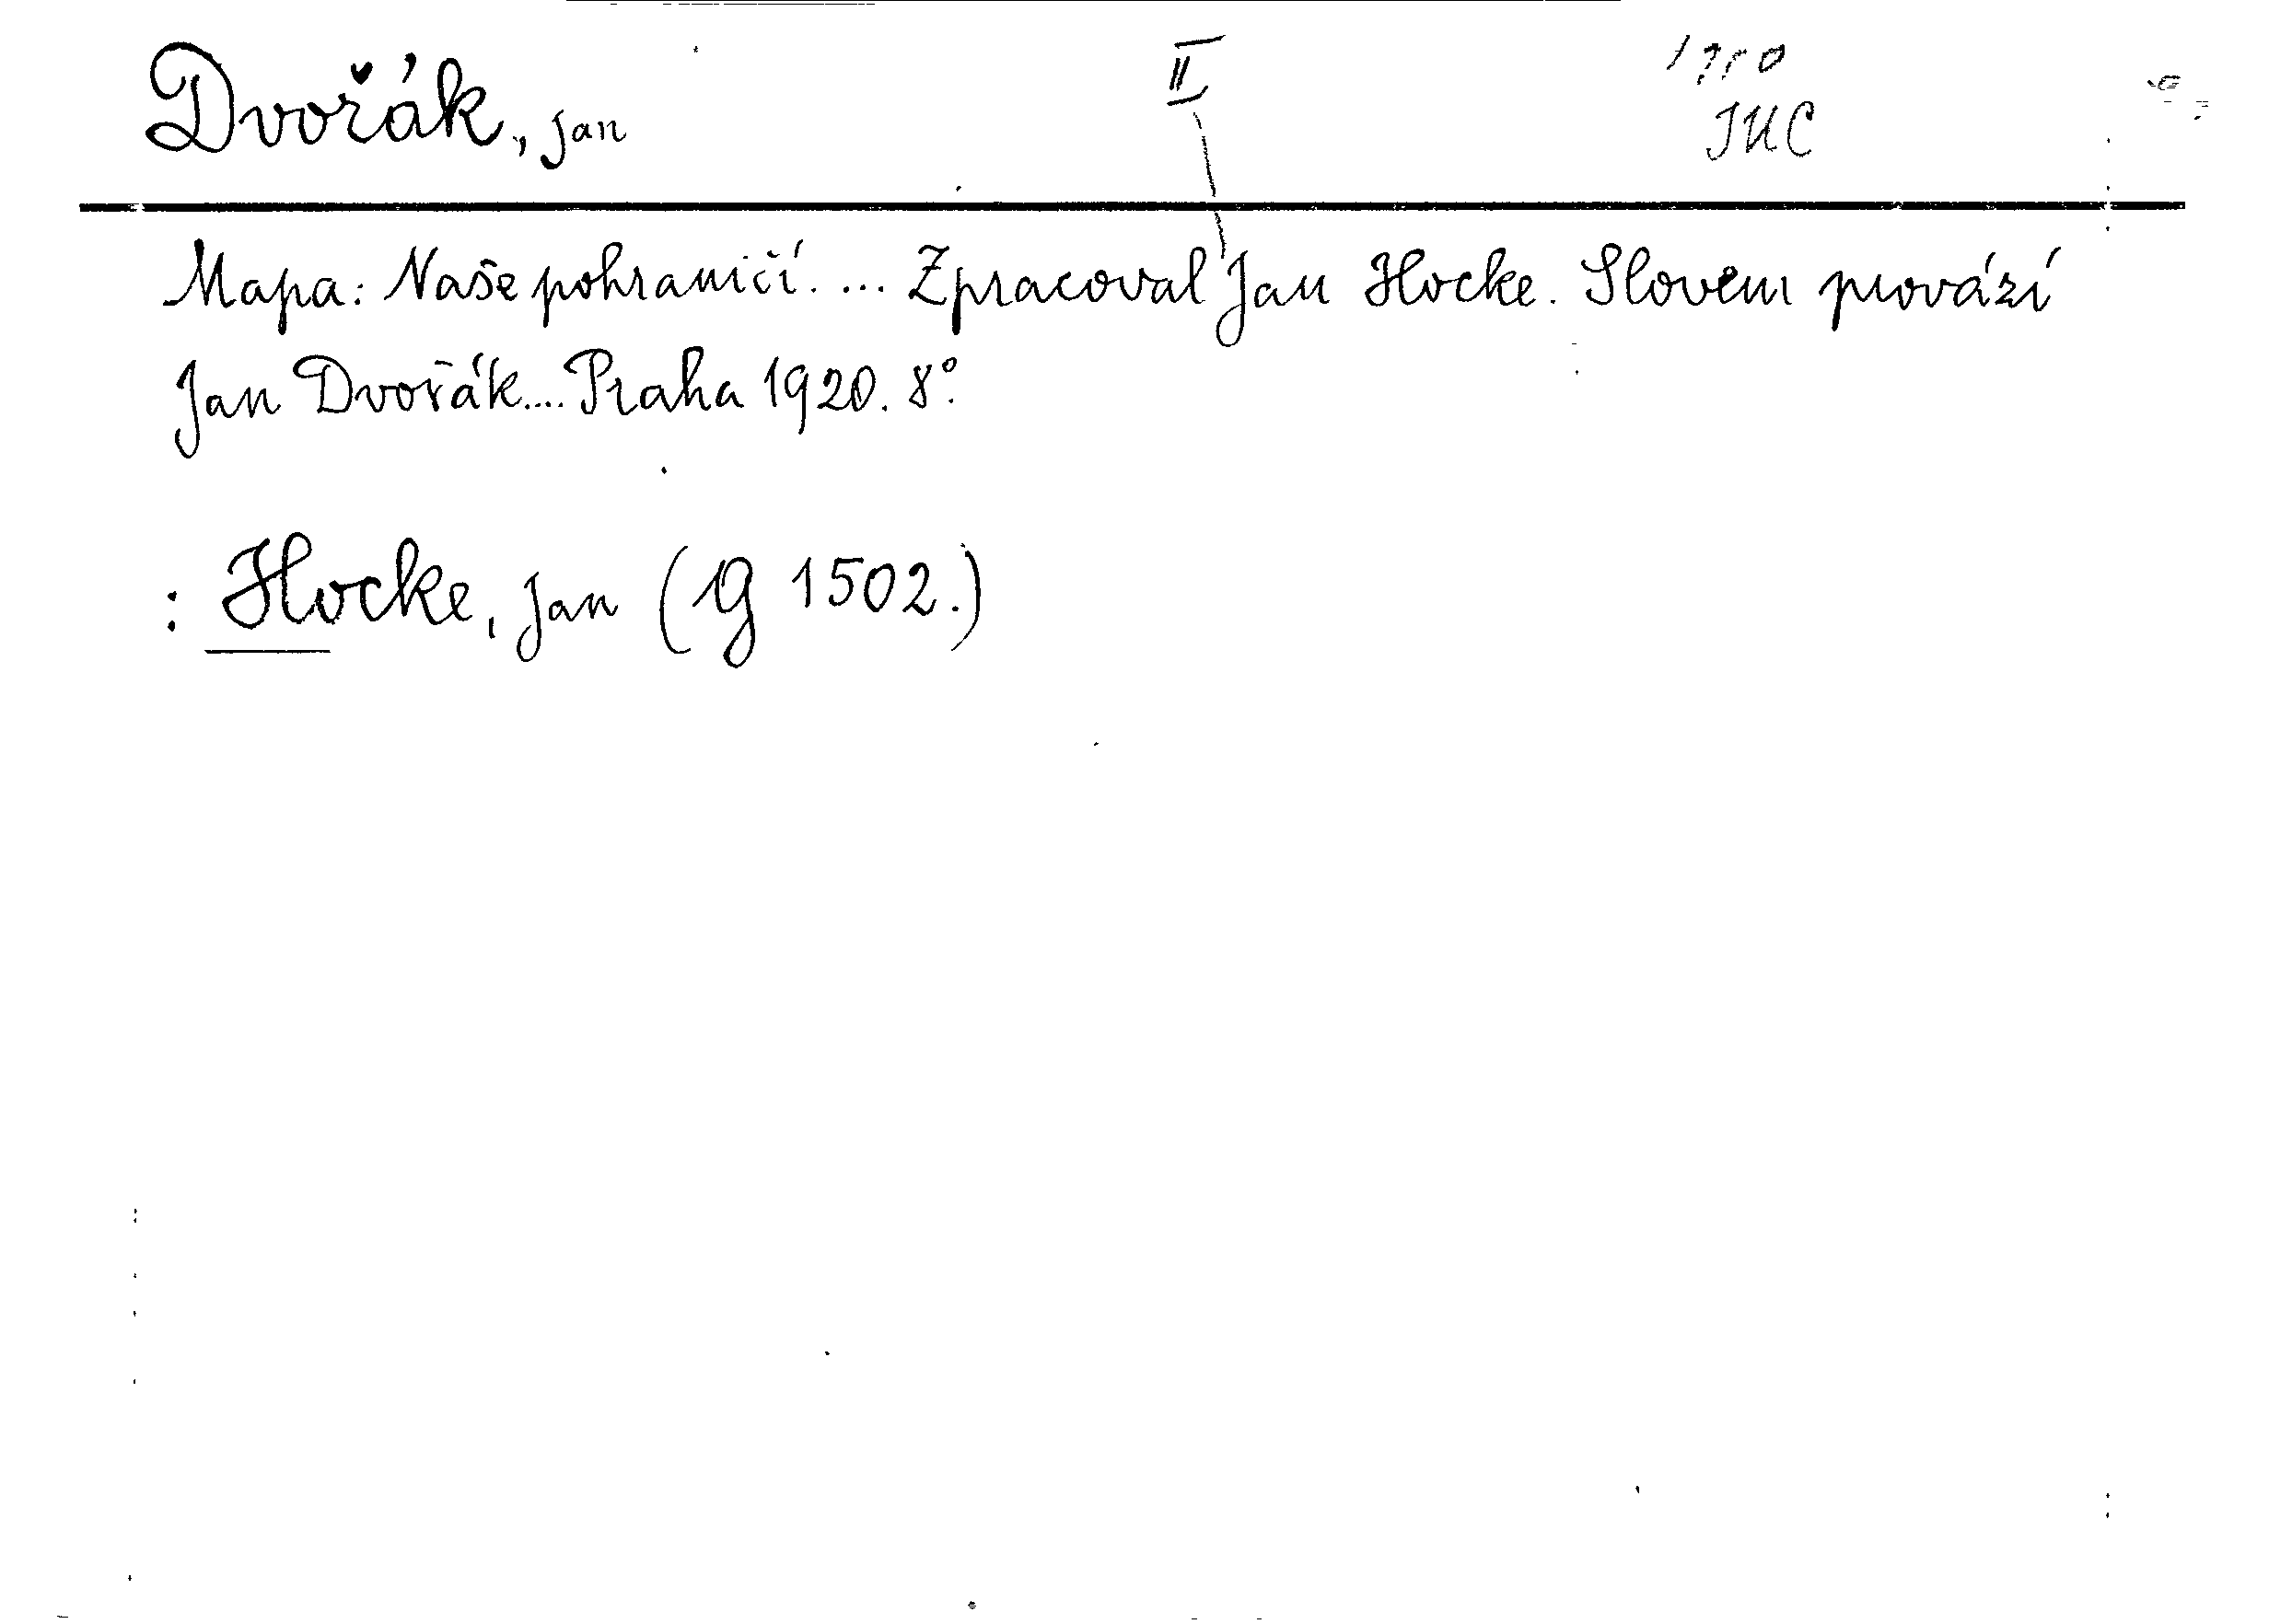 Dvořák, Jan
II
JUC
Mapa: Naše pohraničí. ... Zpracoval Jan Hocke. Slovem provází
Jan Dvořák.... Praha 1920. 8°.
: Hocke, Jan (G 1502.)